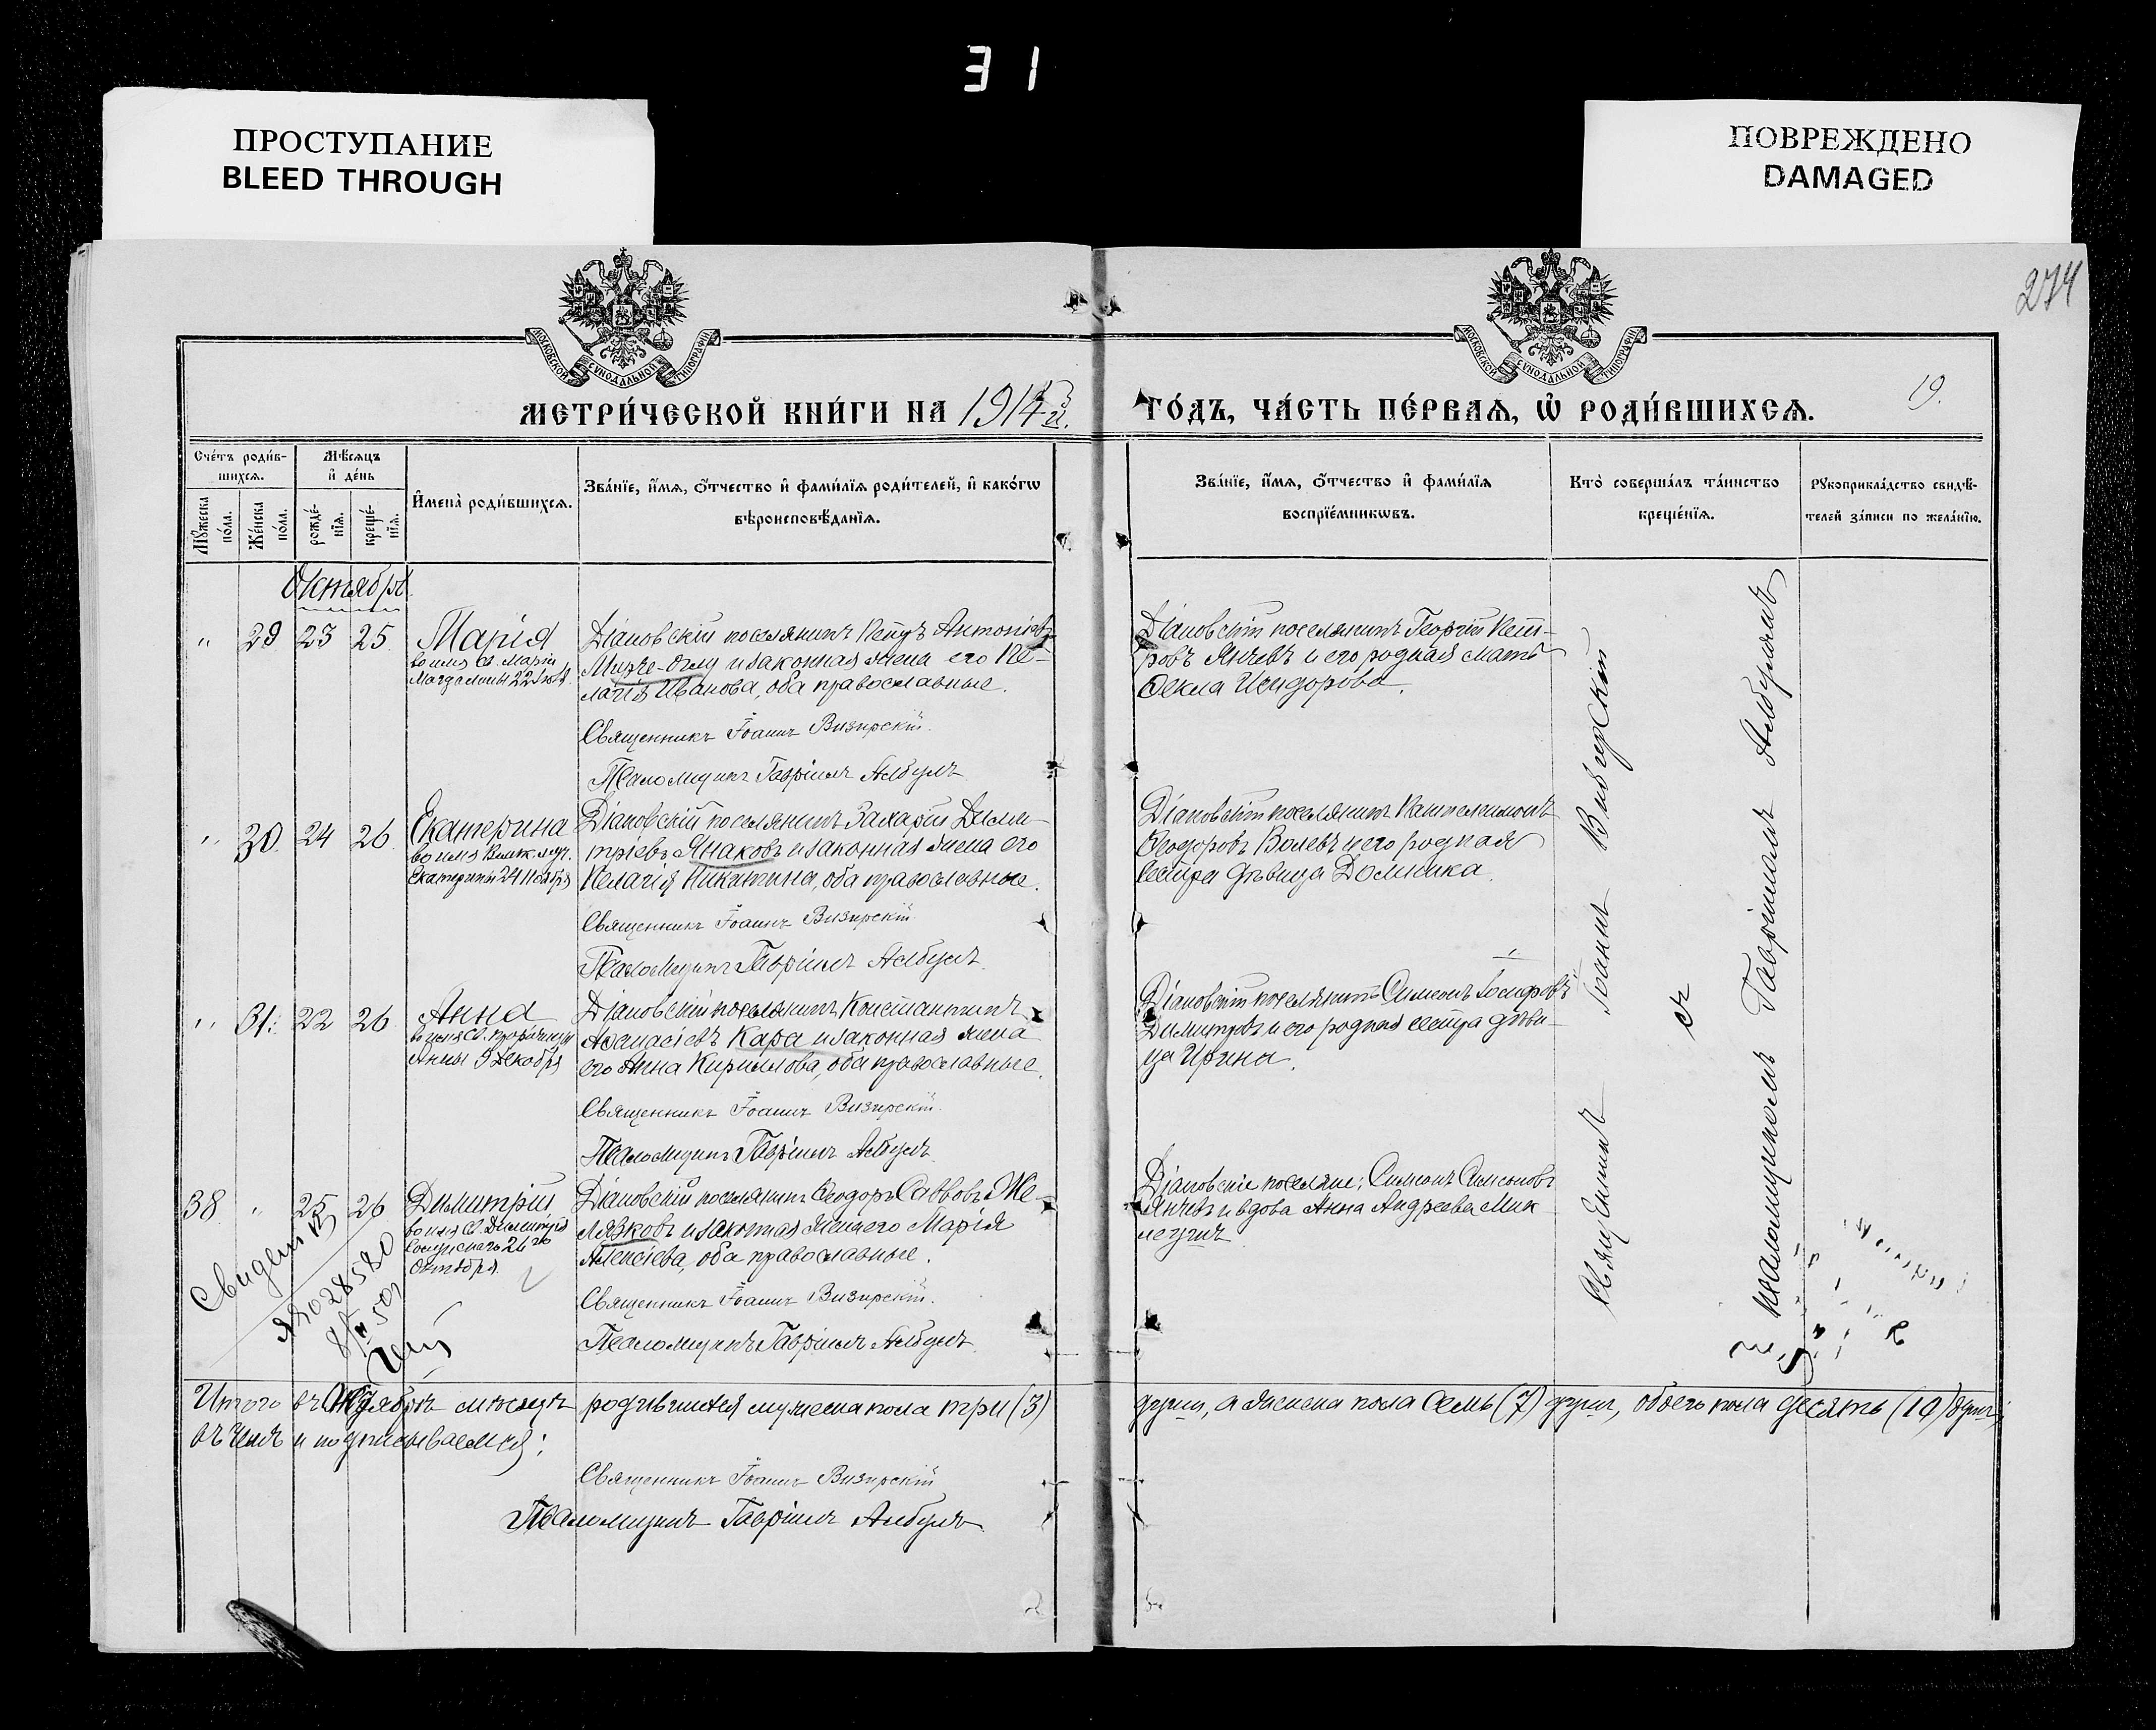 31
ПРОСТУПАНИЕ
BLEED THROUGH
ПОВРЕЖДЕНО
DAMAGED
274
МОСКОВСКОЙ СУНОДАЛЬНОЙ ТИПОГРАФІИ
МОСКОВСКОЙ СУНОДАЛЬНОЙ ТИПОГРАФІИ
МЕТРИ́ЧЕСКОЙ КНИ́ГИ НА 1914 й.
ГО́ДЪ, ЧА́СТЬ ПЕ́РВАѦ, Ѡ҆ РОДИ́ВШИХСѦ.
19.
Сче́тъ роди́в-
шихсѧ.
Мѣ́сѧцъ
и҆ де́нь
Мꙋ́жеска
по́ла.
Же́нска
по́ла.
рожде́-
нїѧ.
креще́-
нїѧ.
И҆мена̀ роди́вшихсѧ.
Зва́нїе, и҆́мѧ, ѻ҆́тчество и҆ фами́лїѧ роди́телей, и҆ како́гѡ
вѣроисповѣ́данїѧ.
Зва́нїе, и҆́мѧ, ѻ҆́тчество и҆ фами́лїѧ
воспрїе́мникѡвъ.
Кто̀ соверша́лъ та́инство
креще́нїѧ.
Рꙋкоприкла́дство свидѣ́-
телей за́писи по жела́нїю.
Октябрь
" 29 23 25 Марія
во имя св. Маріи
Магдалины 22 Іюля
Діановскій поселянинъ Петръ Антоніевъ
Мурзе-оглу и законная жена его Пе-
лагія Иванова, оба православные.
Священникъ Іоаннъ Визирскій
Псаломщикъ Гавріилъ Албулъ
Діановскій поселянинъ Георгій Пет-
ровъ Янчевъ и его родная мать
Ѳекла Исидорова.
" 30. 24 26 Екатерина
во имя Велик. муч.
Екатерины 24 Ноября
Діановскій поселянинъ Захарій Дими-
тріевъ Янаковъ и законная жена его
Пелагія Никитина, оба православные.
Священникъ Іоаннъ Визирскій
Псаломщикъ Гавріилъ Албулъ
Діановскій поселянинъ Пантелеимонъ
Ѳеодоровъ Волевъ и его родная
сестра дѣвица Домника.
" 31. 22 26 Анна
во имя св. пророчицы
Анны 9 Декабря
Діановскій поселянинъ Константинъ
Аѳанасіевъ Кара и законная жена
его Анна Кириллова, оба православные.
Священникъ Іоаннъ Визирскій
Псаломщикъ Гавріилъ Албулъ
Діановскій поселянинъ Симеонъ
Димитровъ и его родная сестра дѣви-
ца Ирина.
38 " 25 26 Димитрій
во имя св. Димитрія
26 го
Октября.
Діановскій поселянинъ Ѳеодоръ Саввовъ Же-
лязковъ и законная жена его Марія
Алексіева, оба православные.
Священникъ Іоаннъ Визирскій
Псаломщикъ Гавріилъ Албулъ
Діановскіе поселяне: Симеонъ Симеоновъ
Янчевъ и вдова Анна Андреева
028580
Священникъ Іоаннъ Визирскій
съ
псаломщикомъ Гавріиломъ Албуломъ
Итого въ Октябрѣ мѣсяцѣ родившихся мужеска пола три (3)
души, а женска пола семь (7) душъ, обоего пола десять (10) душъ,
въ чемъ и подписываемся:
Священникъ Іоаннъ Визирскій
Псаломщикъ Гавріилъ Албулъ